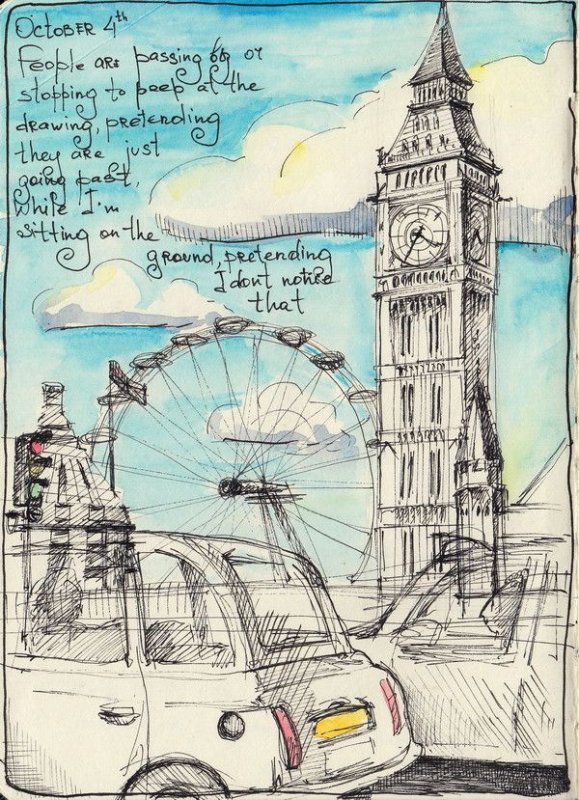 October 4th
People are passing by or
stopping to peep at the
drawing, pretending
they are just
going past,
While I'm
sitting on the
ground, pretending
I dont notise
that